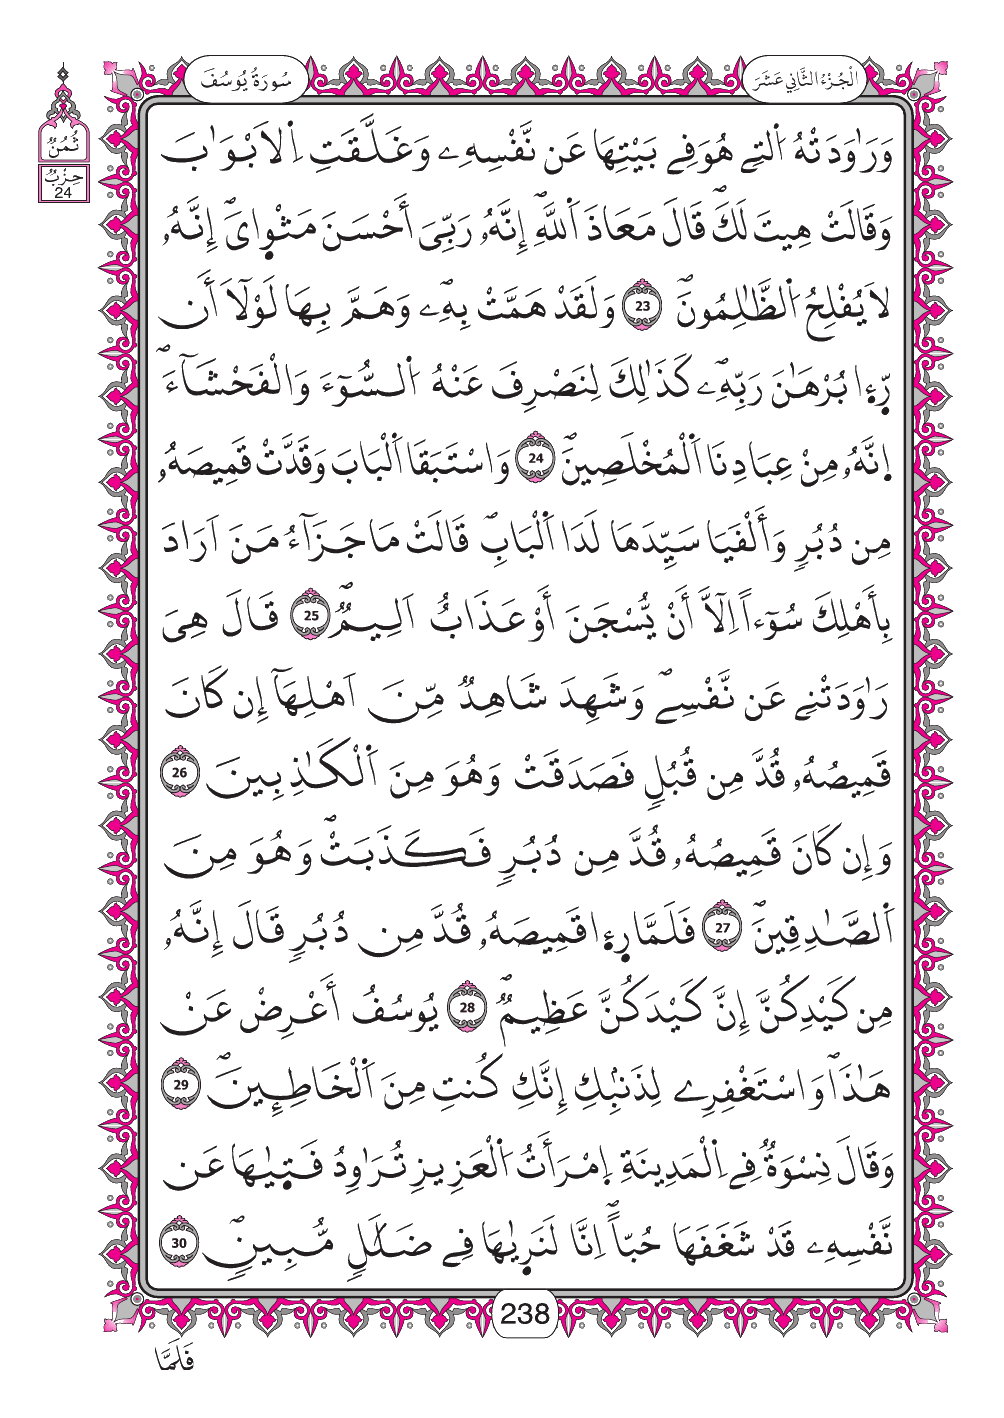 سُورَةُ يُوسُفَ
الْجُزْءُ الثَّانِي عَشَرَ
ثُمُنٌ
حِزْبٌ
24
وَرَٰوَدَتْهُ اُ۬لتِے هُوَ فِے بَيْتِهَا عَن نَّفْسِهِۦ وَغَلَّقَتِ اِ۬لَابْوَٰبَ
وَقَالَتْ هِيتَ لَكَۖ قَالَ مَعَاذَ اَ۬للَّهِۖ إِنَّهُۥ رَبِّىَ أَحْسَنَ مَثْوِاىَۖ إِنَّهُۥ
لَا يُفْلِحُ اُ۬لظَّٰلِمُونَۖ 23 وَلَقَدْ هَمَّتْ بِهِۦۖ وَهَمَّ بِهَا لَوْلَآ أَن
رِّء۪ا بُرْهَٰنَ رَبِّهِۦۖ كَذَٰلِكَ لِنَصْرِفَ عَنْهُ اُ۬لسُّوٓءَ وَالْفَحْشَآءَۖ
اِنَّهُۥ مِنْ عِبَادِنَا اَ۬لْمُخْلَصِينَۖ 24 وَاسْتَبَقَا اَ۬لْبَابَ وَقَدَّتْ قَمِيصَهُۥ
مِن دُبُرٍ وَأَلْفَيَا سَيِّدَهَا لَدَا اَ۬لْبَابِۖ قَالَتْ مَا جَزَآءُ مَنَ اَرَادَ
بِأَهْلِكَ سُوٓءاً اِلَّآ أَنْ يُّسْجَنَ أَوْ عَذَابٌ اَلِيمٌۖ 25 قَالَ هِىَ
رَٰوَدَتْنِے عَن نَّفْسِےۖ وَشَهِدَ شَاهِدٌ مِّنَ اَهْلِهَآ إِن كَانَ
قَمِيصُهُۥ قُدَّ مِن قُبُلٍ فَصَدَقَتْ وَهُوَ مِنَ اَ۬لْكَٰذِبِينَ 26
وَإِن كَانَ قَمِيصُهُۥ قُدَّ مِن دُبُرٍ فَكَذَبَتْۖ وَهُوَ مِنَ
اَ۬لصَّٰدِقِينَۖ 27 فَلَمَّا رِء۪ا قَمِيصَهُۥ قُدَّ مِن دُبُرٍ قَالَ إِنَّهُۥ
مِن كَيْدِكُنَّ إِنَّ كَيْدَكُنَّ عَظِيمٌۖ 28 يُوسُفُ أَعْرِضْ عَنْ
هَٰذَاۖ وَاسْتَغْفِرِے لِذَنۢبِكِ إِنَّكِ كُنتِ مِنَ اَ۬لْخَاطِـِٕينَۖ 29
وَقَالَ نِسْوَةٌ فِے اِ۬لْمَدِينَةِ اِ۪مْرَأَتُ اُ۬لْعَزِيزِ تُرَٰوِدُ فَت۪يٰهَا عَن
نَّفْسِهِۦ قَدْ شَغَفَهَا حُبّاًۖ اِنَّا لَنَر۪يٰهَا فِے ضَلَٰلٍ مُّبِينٍۖ 30
238
فَلَمَّا